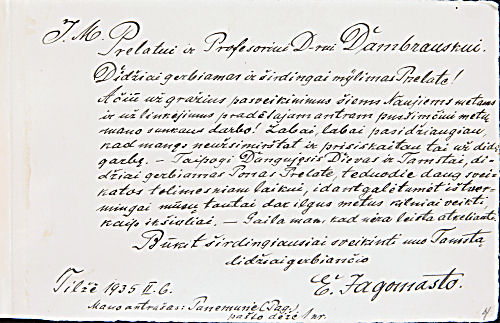 J. M.
Prelatui ir Profesoriui D-rui Dambrauskui.
Didžiai gerbiamas ir širdingai mylimas Prelate!
Ačiū už gražius pasveikinimus šiems Naujiems metams
ir už linkėjimus pradėjajam antram pusšimčiui metų
mano sunkaus darbo! Labai, labai pasidžiaugiau,
kad manęs neužsimirštat ir prisiskaitau tai už didę
garbę. — Taipogi Dangujęsis Dievas ir Tamstai, di-
džiai gerbiamas Ponas Prelate, teduodie daug svei-
katos tolimesniam laikui, idant galėtumėt ištver-
mingai mūsų tautai dar ilgus metus rūlniai veikti,
kaip ikšioliai. — Gaila man, kad nėra leista atkeliauti.
Būkit širdingiausiai sveikinti nuo Tamstą
didžiai gerbiančio
E. Jagomasto.
Tilžė 1935 II. 6.
Mano antrašas: Panemunė (Pag.)
pašto dėžė 1 nr.